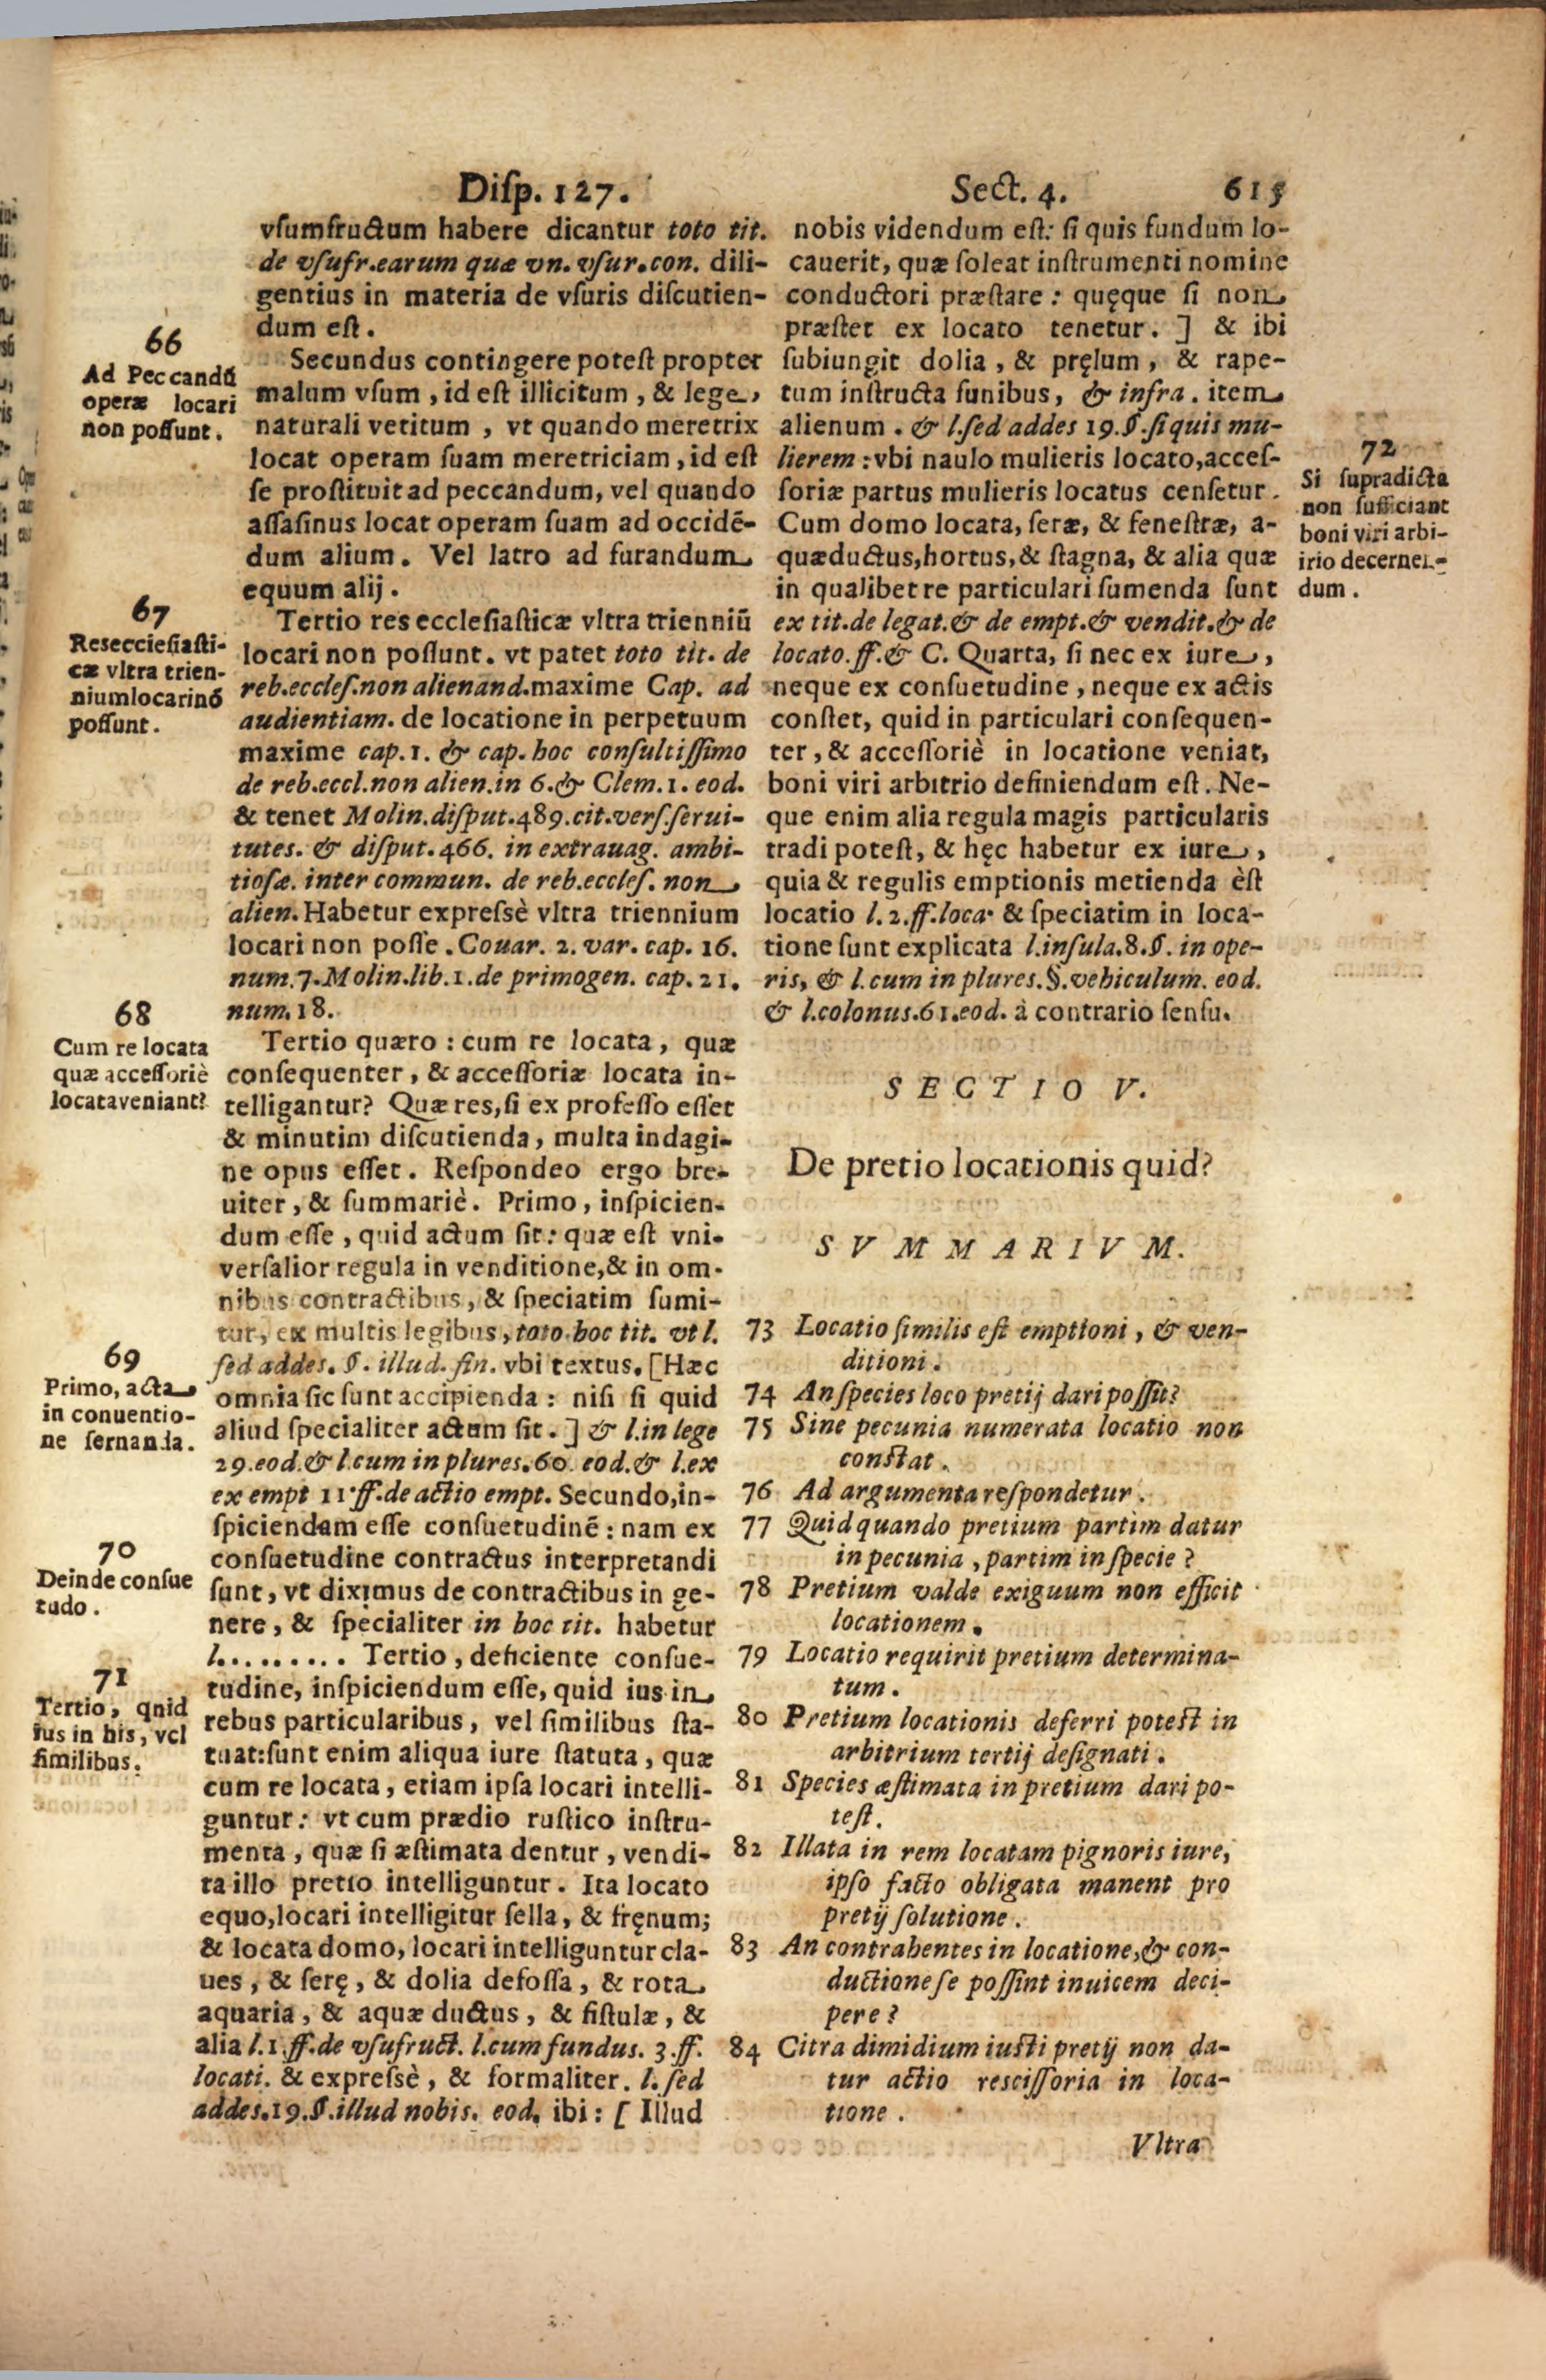 Diſp. 127. Sect. 4. 615
vſumfructum habere dicantur toto tit.
de vſufr.earum quæ vn. vſur.con. dili-
gentius in materia de vſuris diſcutien-
dum eſt.
66
Ad Peccandū
operæ locari
non poſſunt.
Secundus contingere poteſt propter
malum vſum, id eſt illicitum, & lege,
naturali vetitum, vt quando meretrix
locat operam ſuam meretriciam, id eſt
ſe proſtituit ad peccandum, vel quando
aſſaſinus locat operam ſuam ad occidē-
dum alium. Vel latro ad furandum
equum alij.
67
Reseccieſiaſti-
cæ vltra trien-
niumlocarinō
poſſunt.
Tertio res eccleſiaſticæ vltra trienniū
locari non poſſunt. vt patet toto tit. de
reb.eccleſ.non alienand.maxime Cap. ad
audientiam. de locatione in perpetuum
maxime cap.1. & cap. hoc conſultiſſimo
de reb.eccl.non alien.in 6.& Clem.1. eod.
& tenet Molin.diſput.489.cit.verſ.ſerui-
tutes. & diſput.466. in extrauag. ambi-
tioſæ. inter commun. de reb.eccleſ. non
alien. Habetur expreſsè vltra triennium
locari non poſſe. Couar. 2. var. cap. 16.
num.7.Molin.lib.1.de primogen. cap. 21.
num.18.
68
Cum re locata
quæ acceſſoriè
locataveniant?
Tertio quæro: cum re locata, quæ
conſequenter, & acceſſoriæ locata in-
telligantur? Quæ res, ſi ex profeſſo eſſet
& minutim diſcutienda, multa indagi-
ne opus eſſet. Reſpondeo ergo bre-
uiter, & ſummariè. Primo, inſpicien-
dum eſſe, quid actum ſit: quæ eſt vni-
verſalior regula in venditione,& in om-
nibus contractibus, & ſpeciatim ſumi-
tur, ex multis legibus, toto hoc tit. vt l.
ſed addes. §. illud. fin. vbi textus. [Hæc
69
Primo, acta
in conuentio-
ne ſernanda.
omnia ſic ſunt accipienda: niſi ſi quid
aliud ſpecialiter actum ſit. ] & l.in lege
29.eod.& l.cum in plures.60. eod.& l.ex
ex empt 11.ff.de actio empt. Secundo,in-
ſpiciendam eſſe conſuetudinē: nam ex
70
Deinde conſue
tudo.
conſuetudine contractus interpretandi
ſunt, vt diximus de contractibus in ge-
nere, & ſpecialiter in hoc tit. habetur
l......... Tertio, deficiente conſue-
71
Tertio, qnid
ius in his, vel
ſimilibus.
tudine, inſpiciendum eſſe, quid ius in
rebus particularibus, vel ſimilibus ſta-
tuat:ſunt enim aliqua iure ſtatuta, quæ
cum re locata, etiam ipſa locari intelli-
guntur: vt cum prædio ruſtico inſtru-
menta, quæ ſi æſtimata dentur, vendi-
ta illo pretio intelliguntur. Ita locato
equo,locari intelligitur ſella, & fręnum;
& locata domo, locari intelliguntur cla-
ues, & ſerę, & dolia defoſſa, & rota
aquaria, & aquæ ductus, & fiſtulæ, &
alia l.1.ff.de vſufruct. l.cum fundus. 3.ff.
locati. & expreſsè, & formaliter. l. ſed
addes.19.§.illud nobis. eod. ibi: [ Illud
nobis videndum eſt: ſi quis fundum lo-
cauerit, quæ ſoleat inſtrumenti nomine
conductori præſtare: quęque ſi non
præſtet ex locato tenetur. ] & ibi
ſubiungit dolia, & pręlum, & rape-
tum inſtructa funibus, & infra. item
alienum. & l.ſed addes 19.§.ſi quis mu-
lierem: vbi naulo mulieris locato,acceſ-
ſoriæ partus mulieris locatus cenſetur.
72
Si ſupradicta
non ſufficiant
boni viri arbi-
irio decernen-
dum.
Cum domo locata, ſeræ, & feneſtræ, a-
quæductus,hortus,& ſtagna, & alia quæ
in qualibet re particulari ſumenda ſunt
ex tit.de legat.& de empt.& vendit.& de
locato.ff.& C. Quarta, ſi nec ex iure,
neque ex conſuetudine, neque ex actis
conſtet, quid in particulari conſequen-
ter, & acceſſoriè in locatione veniat,
boni viri arbitrio definiendum eſt. Ne-
que enim alia regula magis particularis
tradi poteſt, & hęc habetur ex iure,
quia & regulis emptionis metienda èſt
locatio l. 2.ff.loca. & ſpeciatim in loca-
tione ſunt explicata l.inſula.8.§. in ope-
ris, & l.cum in plures.§.vehiculum. eod.
& l.colonus.61.eod. à contrario ſenſu.
SECTIO V.
De pretio locationis quid?
SVMMARIVM.
73 Locatio ſimilis eſt emptioni, & ven-
ditioni.
74 An ſpecies loco pretij dari poſſit?
75 Sine pecunia numerata locatio non
conſtat.
76 Ad argumenta reſpondetur.
77 Quid quando pretium partim datur
in pecunia, partim in ſpecie?
78 Pretium valde exiguum non efficit
locationem.
79 Locatio requirit pretium determina-
tum.
80 Pretium locationis deferri poteſt in
arbitrium tertij deſignati.
81 Species æſtimata in pretium dari po-
teſt.
82 Illata in rem locatam pignoris iure,
ipſo facto obligata manent pro
pretij ſolutione.
83 An contrahentes in locatione,& con-
ductione ſe poſſint inuicem deci-
pere?
84 Citra dimidium iuſti pretij non da-
tur actio resciſſoria in loca-
tione.
Vltra